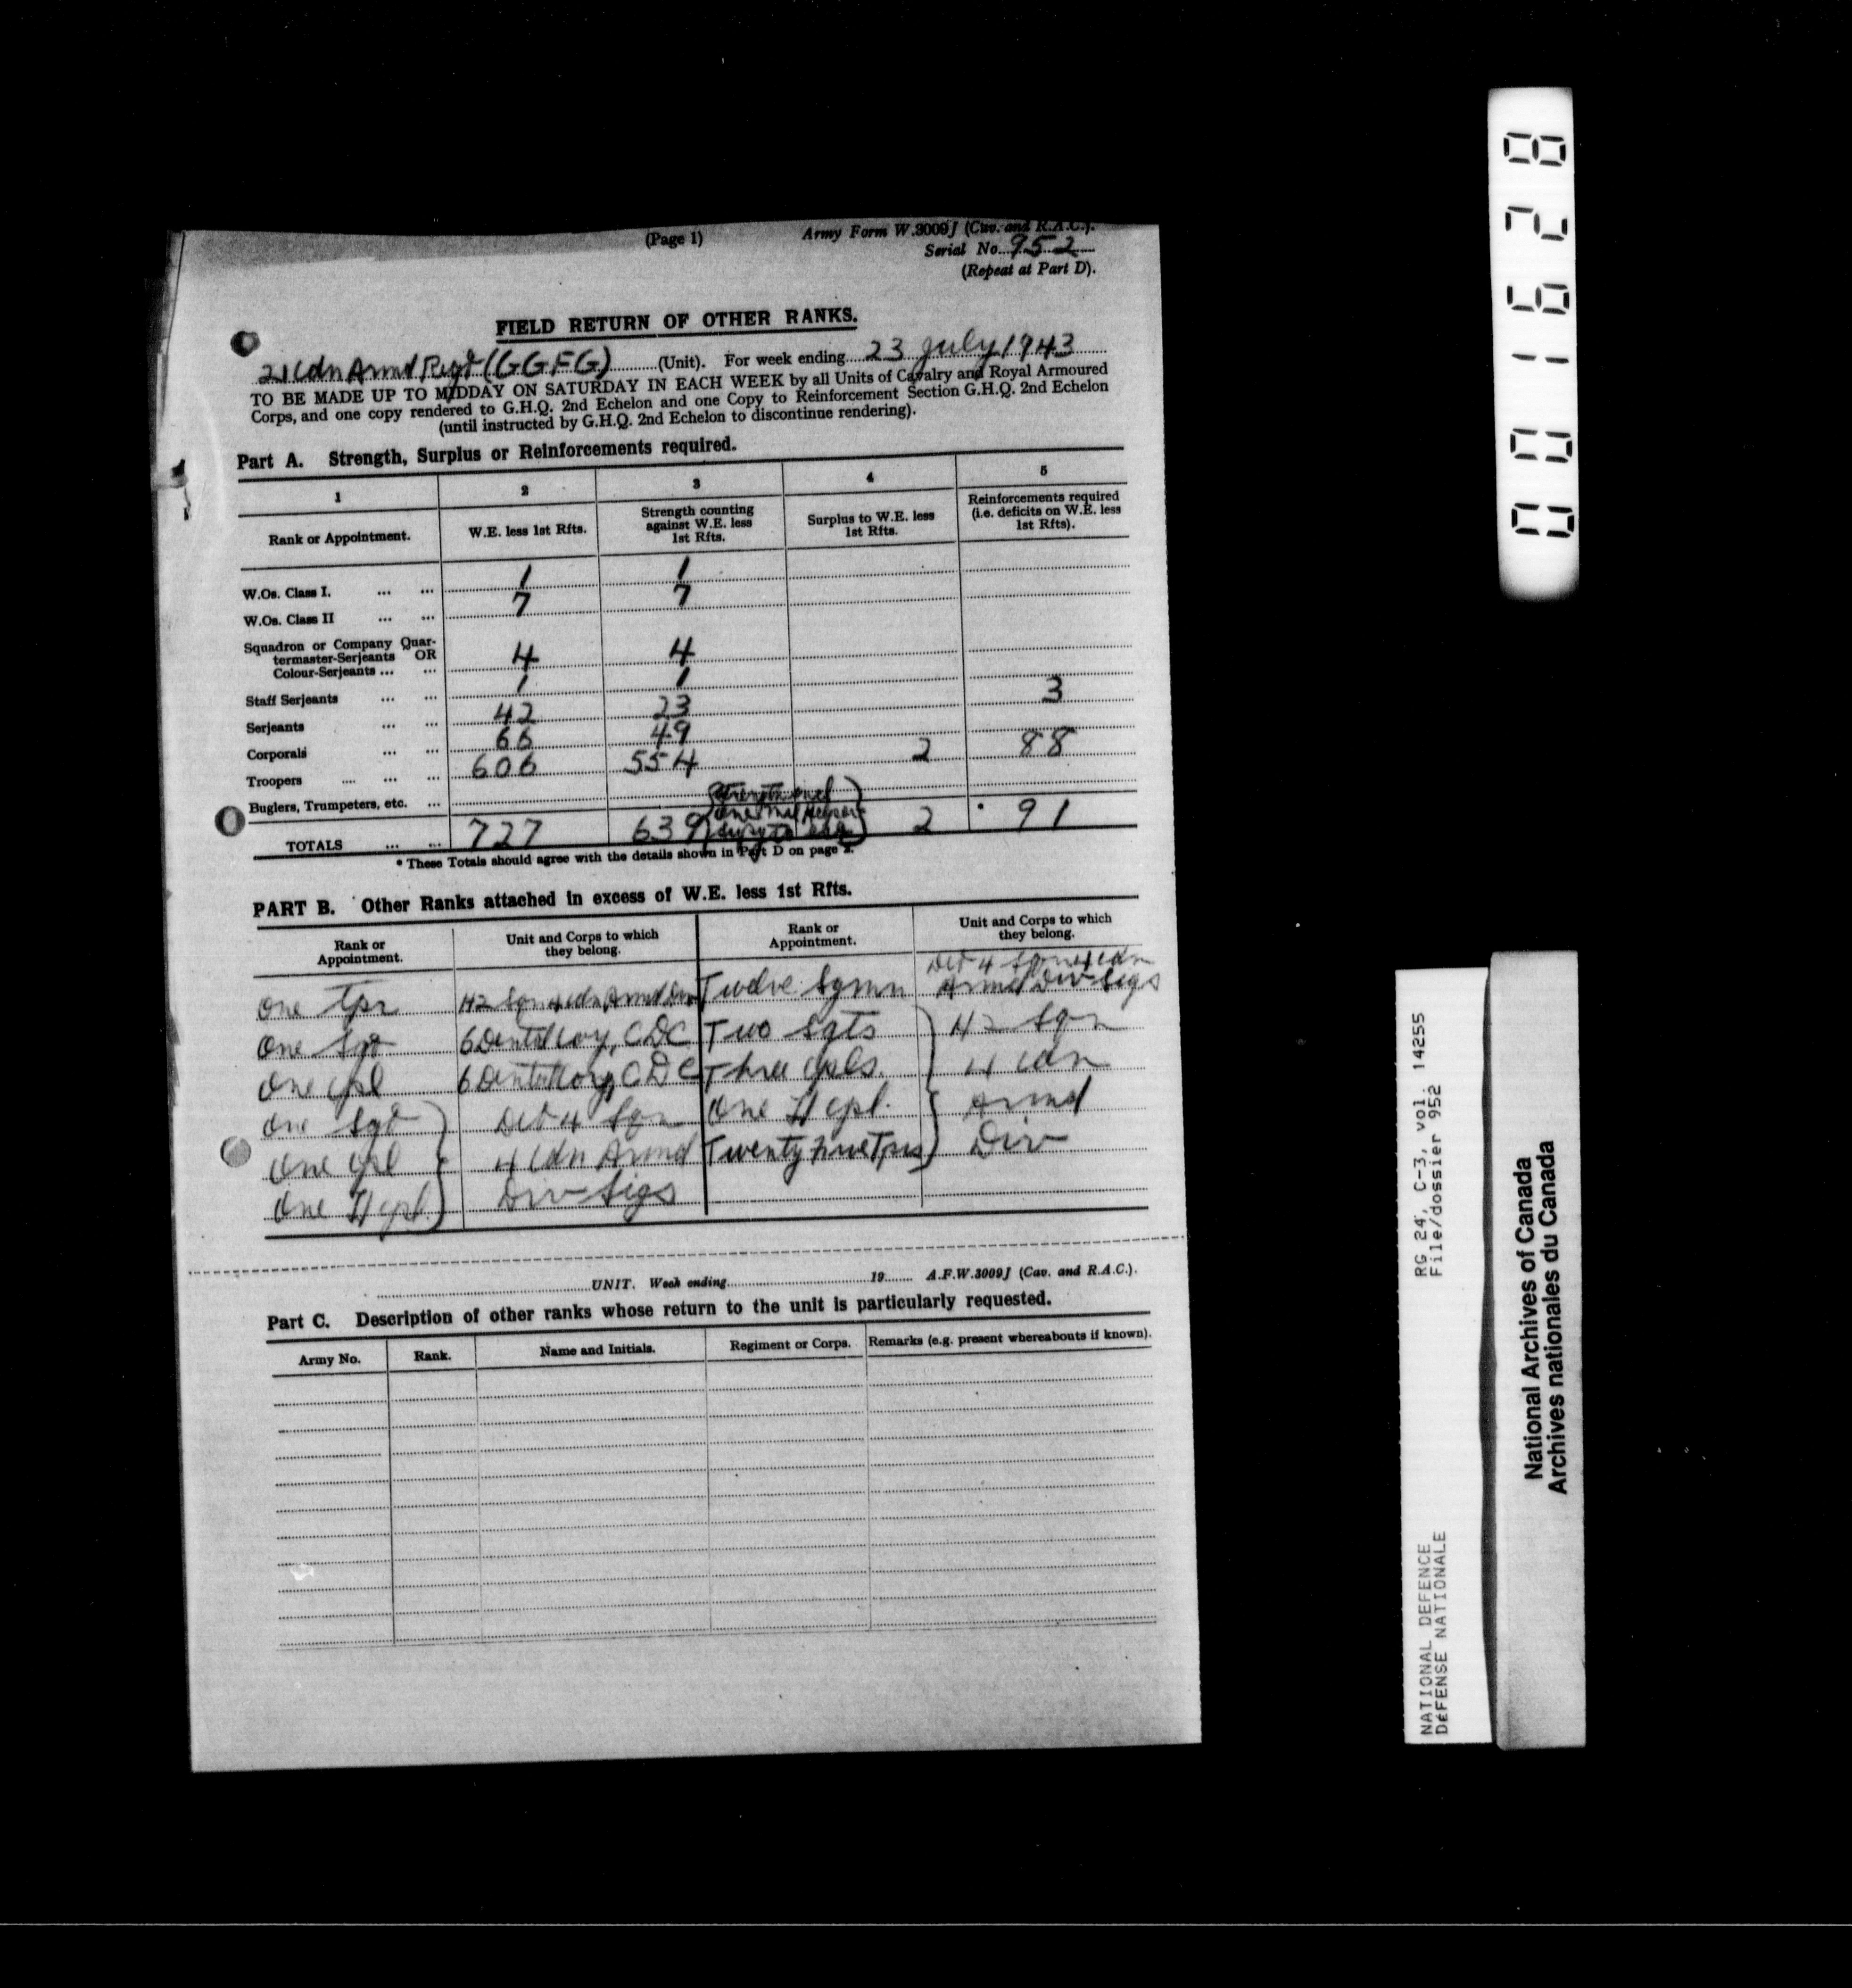 (Page 1)
Army Form W.3009J (Cav. and R.A.C.).
Serial No. 952
(Repeat at Part D).
FIELD RETURN OF OTHER RANKS.
21 Cdn Armd Regt (GGFG) (Unit). For week ending 23 July 1943
TO BE MADE UP TO MIDDAY ON SATURDAY IN EACH WEEK by all Units of Cavalry and Royal Armoured
Corps, and one copy rendered to G.H.Q. 2nd Echelon and one Copy to Reinforcement Section G.H.Q. 2nd Echelon
(until instructed by G.H.Q. 2nd Echelon to discontinue rendering).
Part A. Strength, Surplus or Reinforcements required.
1 2 3 4 5
Rank or Appointment. W.E. less 1st Rfts. Strength counting against W.E. less 1st Rfts. Surplus to W.E. less 1st Rfts. Reinforcements required (i.e. deficits on W.E. less 1st Rfts).
W.Os. Class I. ... ... 1 1
W.Os. Class II ... ... 7 7
Squadron or Company Quar-
termaster-Serjeants OR
Colour-Serjeants ... ... 4 4
Staff Serjeants ... ... 1 1
Serjeants ... ... 42 23 3
Corporals ... ... 66 49
Troopers .... ... ... 606 554 2 88
Buglers, Trumpeters, etc. ...
TOTALS ... ... 727 639 2 • 91
* These Totals should agree with the details shown in Part D on page 2.
PART B. Other Ranks attached in excess of W.E. less 1st Rfts.
Rank or Appointment. Unit and Corps to which they belong. Rank or Appointment. Unit and Corps to which they belong.
One Tpr H2 Sqn 4 Cdn Armd Div Twelve Sgmn Det 4 Sqn 4 Cdn Armd Div Sigs
One Sgt 6 Dental Coy, CDC Two Sgts H2 Sqn
One Cpl 6 Dental Coy, CDC Three Cpls. 4 Cdn
One Sgt Det 4 Sqn One L/Cpl. Armd
One Cpl 4 Cdn Armd Twenty Tprs Div
One L/Cpl. Div Sigs
UNIT. Week ending 19 A.F.W.3009J (Cav. and R.A.C.).
Part C. Description of other ranks whose return to the unit is particularly requested.
Army No. Rank. Name and Initials. Regiment or Corps. Remarks (e.g. present whereabouts if known).
001628
RG 24, C-3, vol. 14255
File/dossier 952
NATIONAL DEFENCE
DÉFENSE NATIONALE
National Archives of Canada
Archives nationales du Canada